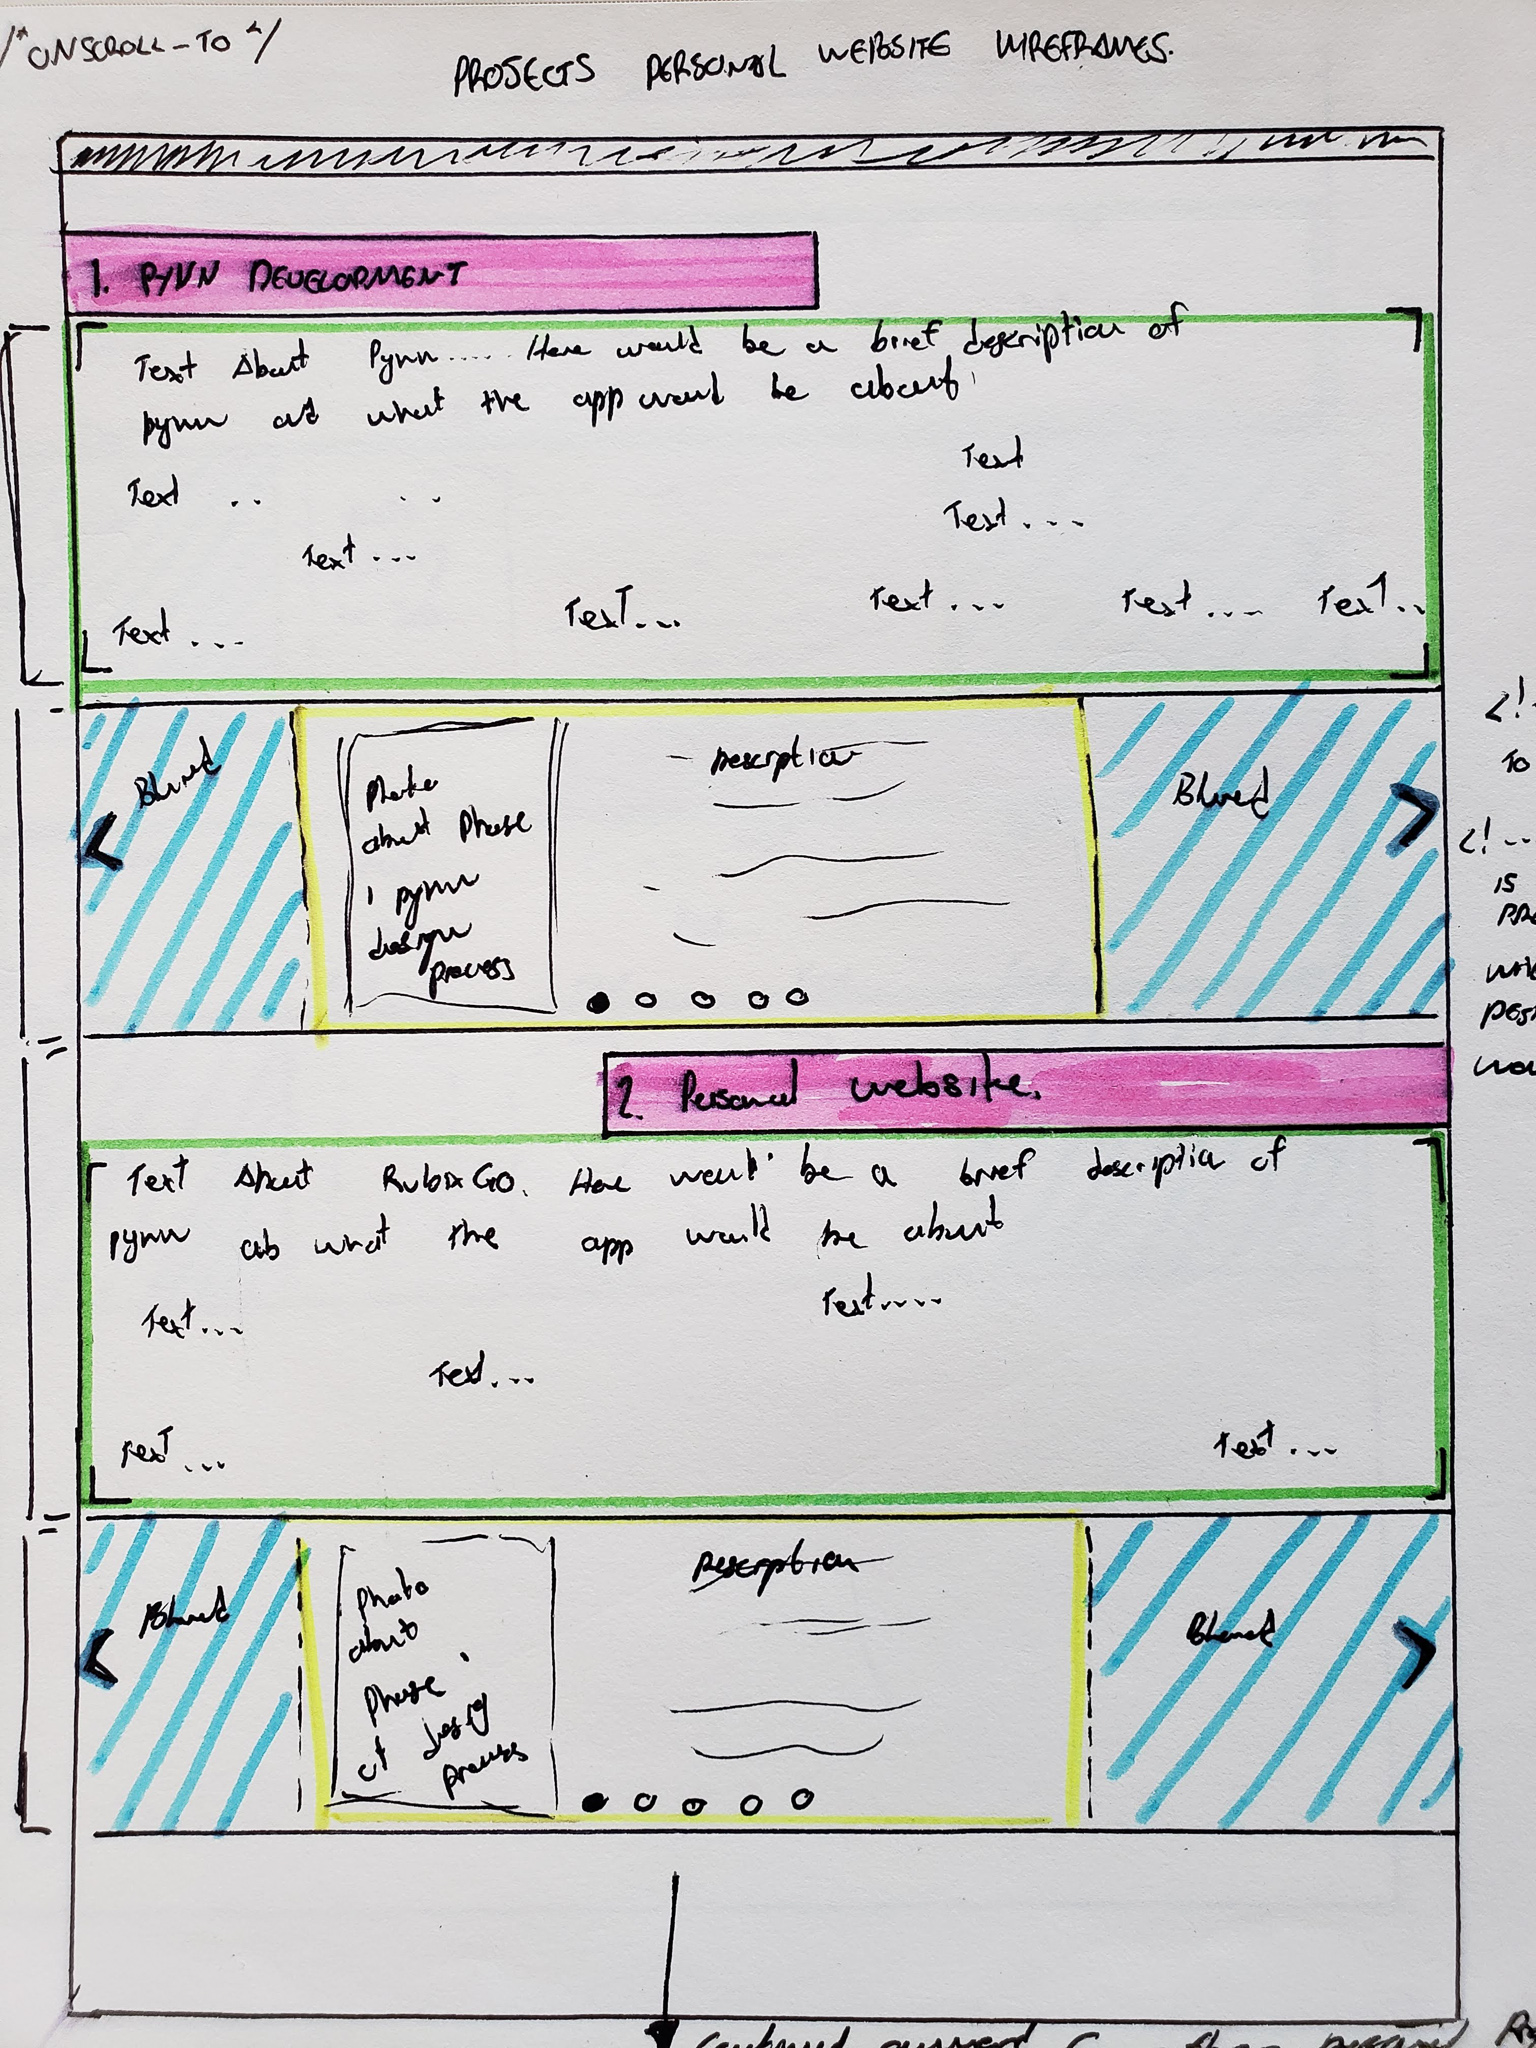 /* ONSCROLL-TO */
PROJECTS PERSONAL WEBSITE WIREFRAMES.
1. PYNN DEVELOPMENT
Text About Pynn..... Here would be a brief description of
pynn and what the app would be about
Text
Text .. ..
Text ...
Text ...
Text ... Text... Text ... Text .... Text..
<!-
TO
Blured
Photo
about Phase
1 pynn
design
process
Description
Blured
<!--
IS
2. Personal website.
Text About RubixGO. Here would be a brief description of
pynn ab what the app would be about
Text... Text....
Text...
Text ... Text ...
Blured
photo
about
phase 1
of design
process
Description
Blured